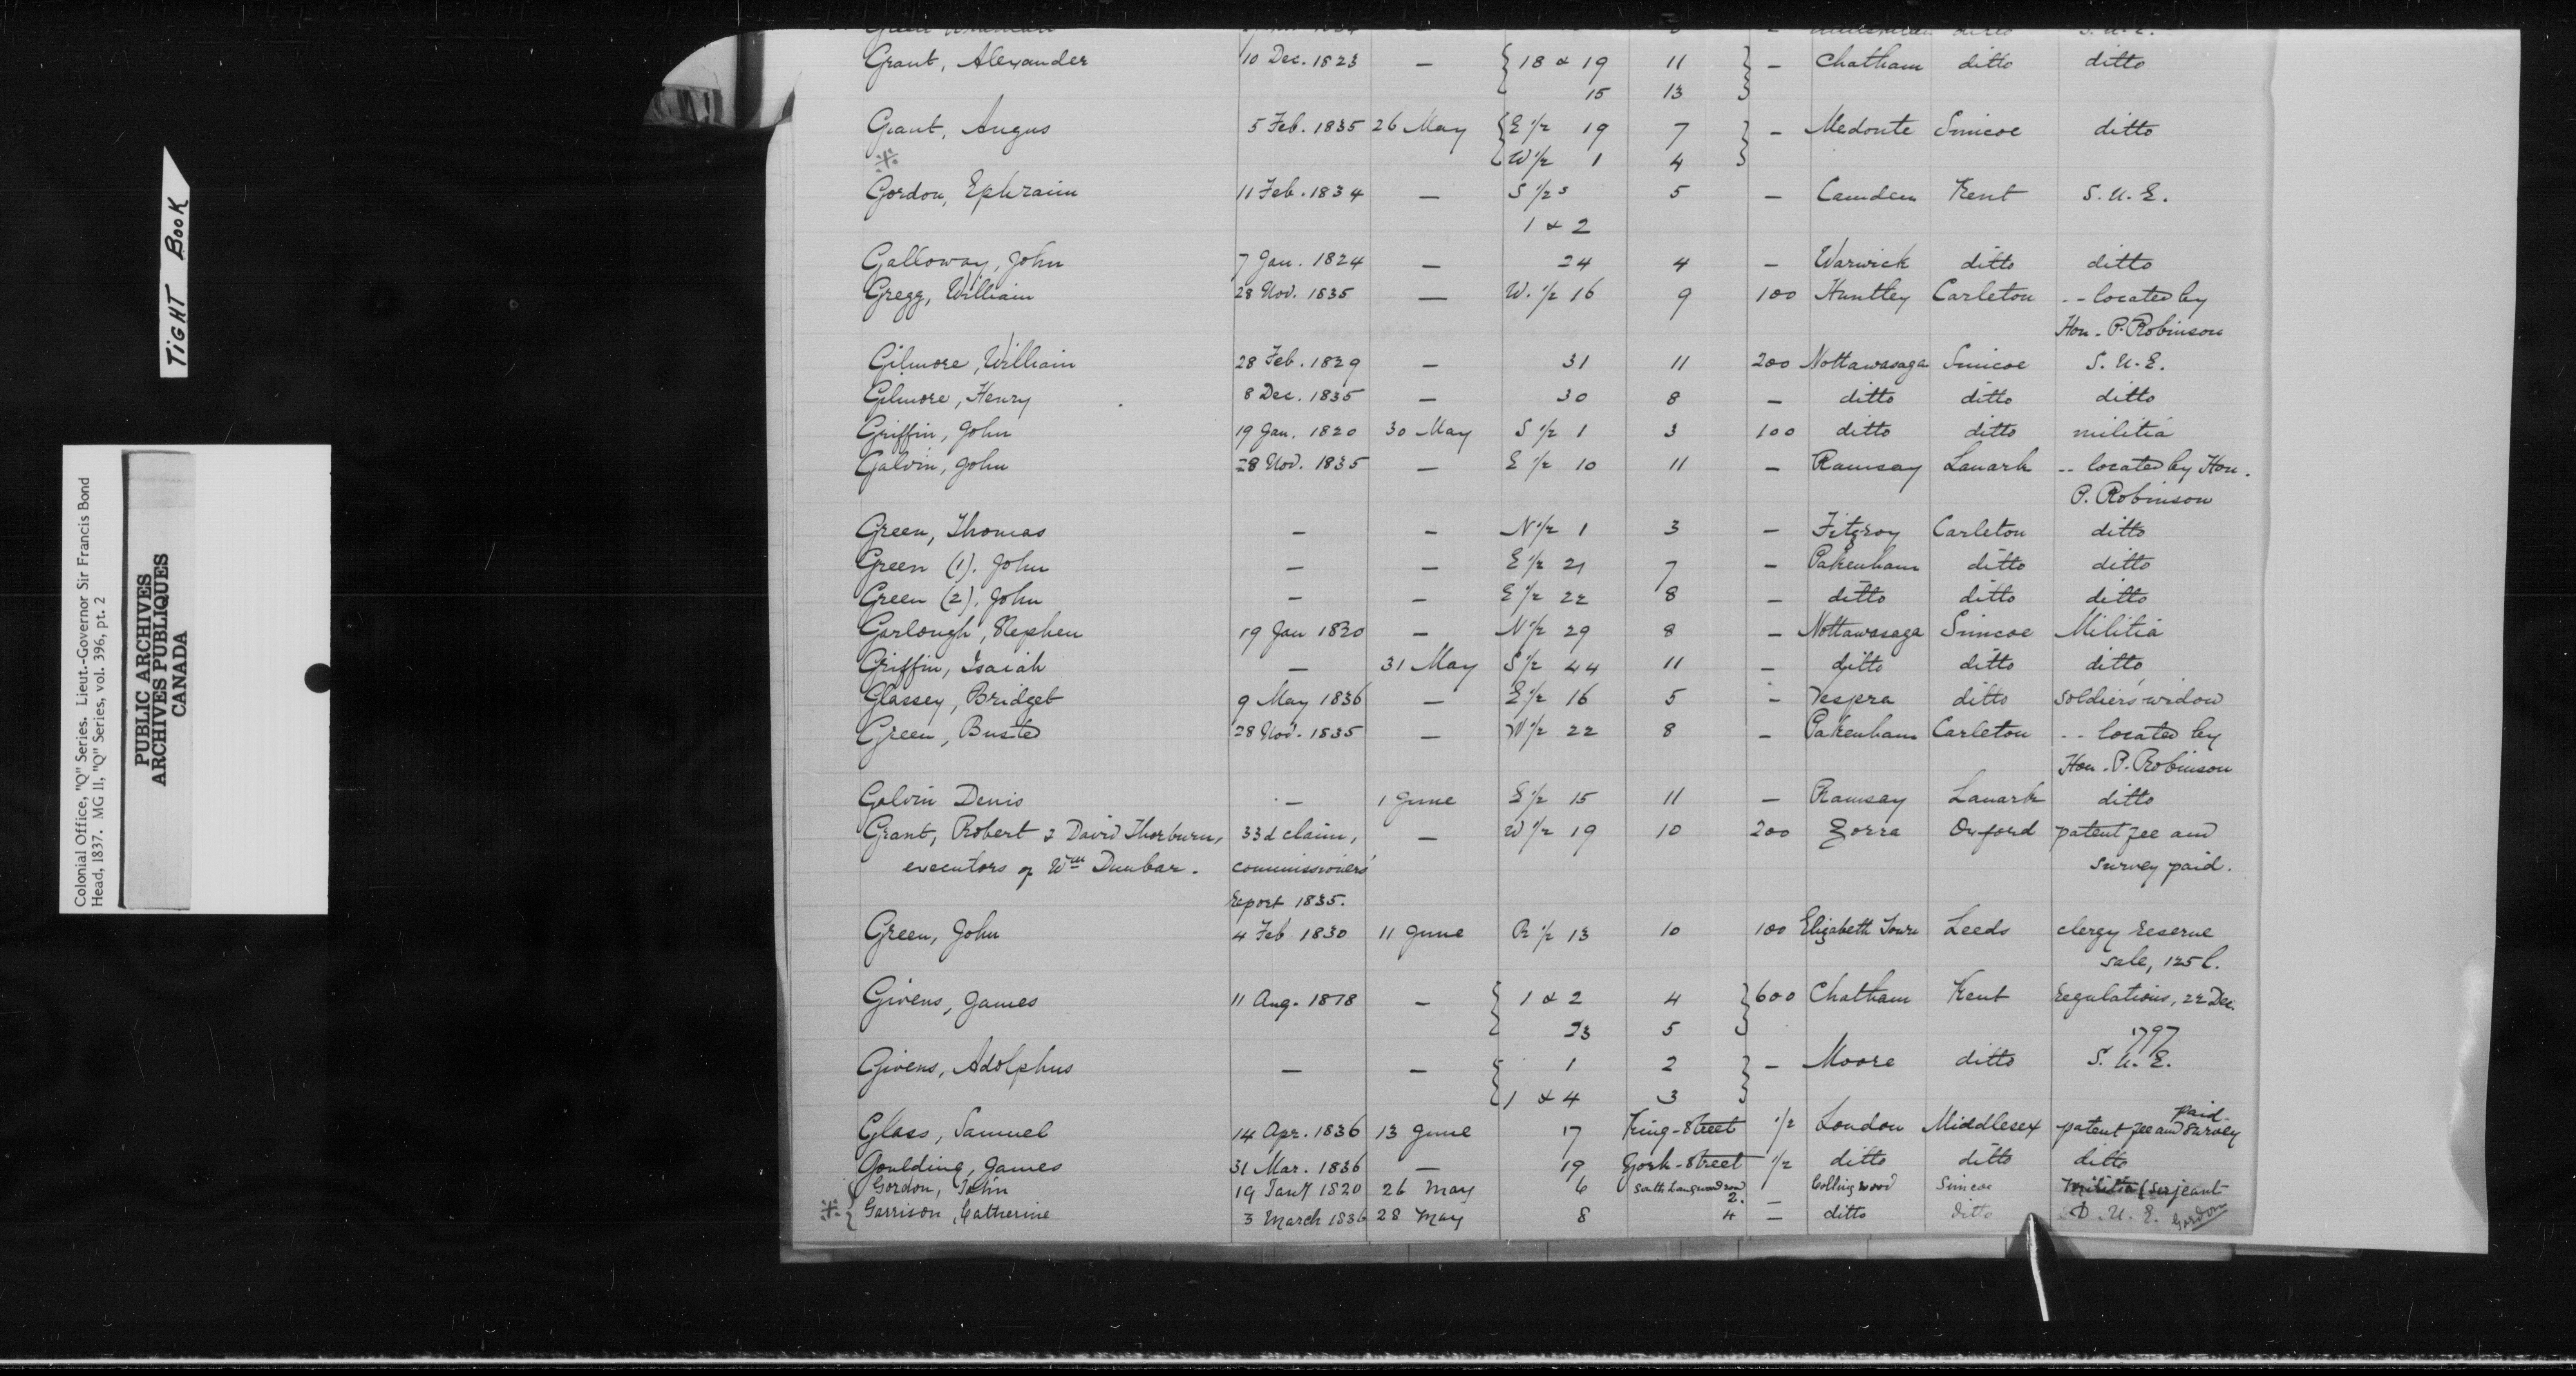 TIGHT BOOK
Colonial Office, "Q" Series. Lieut.-Governor Sir Francis Bond
Head, 1837. MG 11, "Q" Series, vol. 396, pt. 2
PUBLIC ARCHIVES
ARCHIVES PUBLIQUES
CANADA
Grant, Alexander 10 Dec. 1823 — { 18 & 19 11 } — Chatham ditto ditto
15 13
Grant, Angus 5 Feb. 1835 26 May { E 1/2 19 7 } — Medonte Simcoe ditto
※ W 1/2 1 4
Gordon, Ephraim 11 Feb. 1834 — S 1/2s 5 — Camden Kent S. U. E.
1 & 2
Galloway, John 7 Jan. 1824 — 24 4 — Warwick ditto ditto
Gregg, William 28 Nov. 1835 — W. 1/2 16 9 100 Huntley Carleton -- located by
Hon. P. Robinson
Gilmore, William 28 Feb. 1829 — 31 11 200 Nottawasaga Simcoe S. U. E.
Gilmore, Henry 8 Dec. 1835 — 30 8 — ditto ditto ditto
Griffin, John 19 Jan. 1820 30 May S 1/2 1 3 100 ditto ditto militia
Galvin, John 28 Nov. 1835 — E 1/2 10 11 — Ramsay Lanark -- located by Hon.
P. Robinson
Green, Thomas — — N 1/2 1 3 — Fitzroy Carleton ditto
Green (1). John — — E 1/2 21 7 — Pakenham ditto ditto
Green (2). John — — E 1/2 22 8 — ditto ditto ditto
Garlough, Stephen 19 Jan 1820 — N 1/2 29 8 — Nottawasaga Simcoe Militia
Griffin, Isaiah — 31 May S 1/2 44 11 — ditto ditto ditto
Glassey, Bridget 9 May 1836 — E 1/2 16 5 — Vespra ditto soldier's widow
Green, Busted 28 Nov. 1835 — W 1/2 22 8 — Pakenham Carleton -- located by
Hon. P. Robinson
Galvin Denis — 1 June E 1/2 15 11 — Ramsay Lanark ditto
Grant, Robert & David Thorburn, 33d claim, — W 1/2 19 10 200 Zorra Oxford patent fee and
executors of Wm Dunbar. commissioners' survey paid.
report 1835.
Green, John 4 Feb 1830 11 June R 1/2 13 10 100 Elizabeth Town Leeds clergy reserve
sale, 125 l.
Givens, James 11 Aug. 1818 — { 1 & 2 4 } 600 Chatham Kent Regulations, 22 Dec.
23 5 1797
Givens, Adolphus — — { 1 2 } — Moore ditto S. U. E.
1 & 4 3
paid.
Glass, Samuel 14 Apr. 1836 13 June 17 King-Street 1/2 London Middlesex patent fee and survey
Goulding, James 31 Mar. 1836 — 19 York-Street 1/2 ditto ditto ditto
Gordon, John 19 Jany 1820 26 May 6 2. — Collingwood Simcoe Militia (Serjeant
※ { Garrison, Catherine 3 March 1836 28 May 8 4 — ditto ditto D. U. E. Gordon